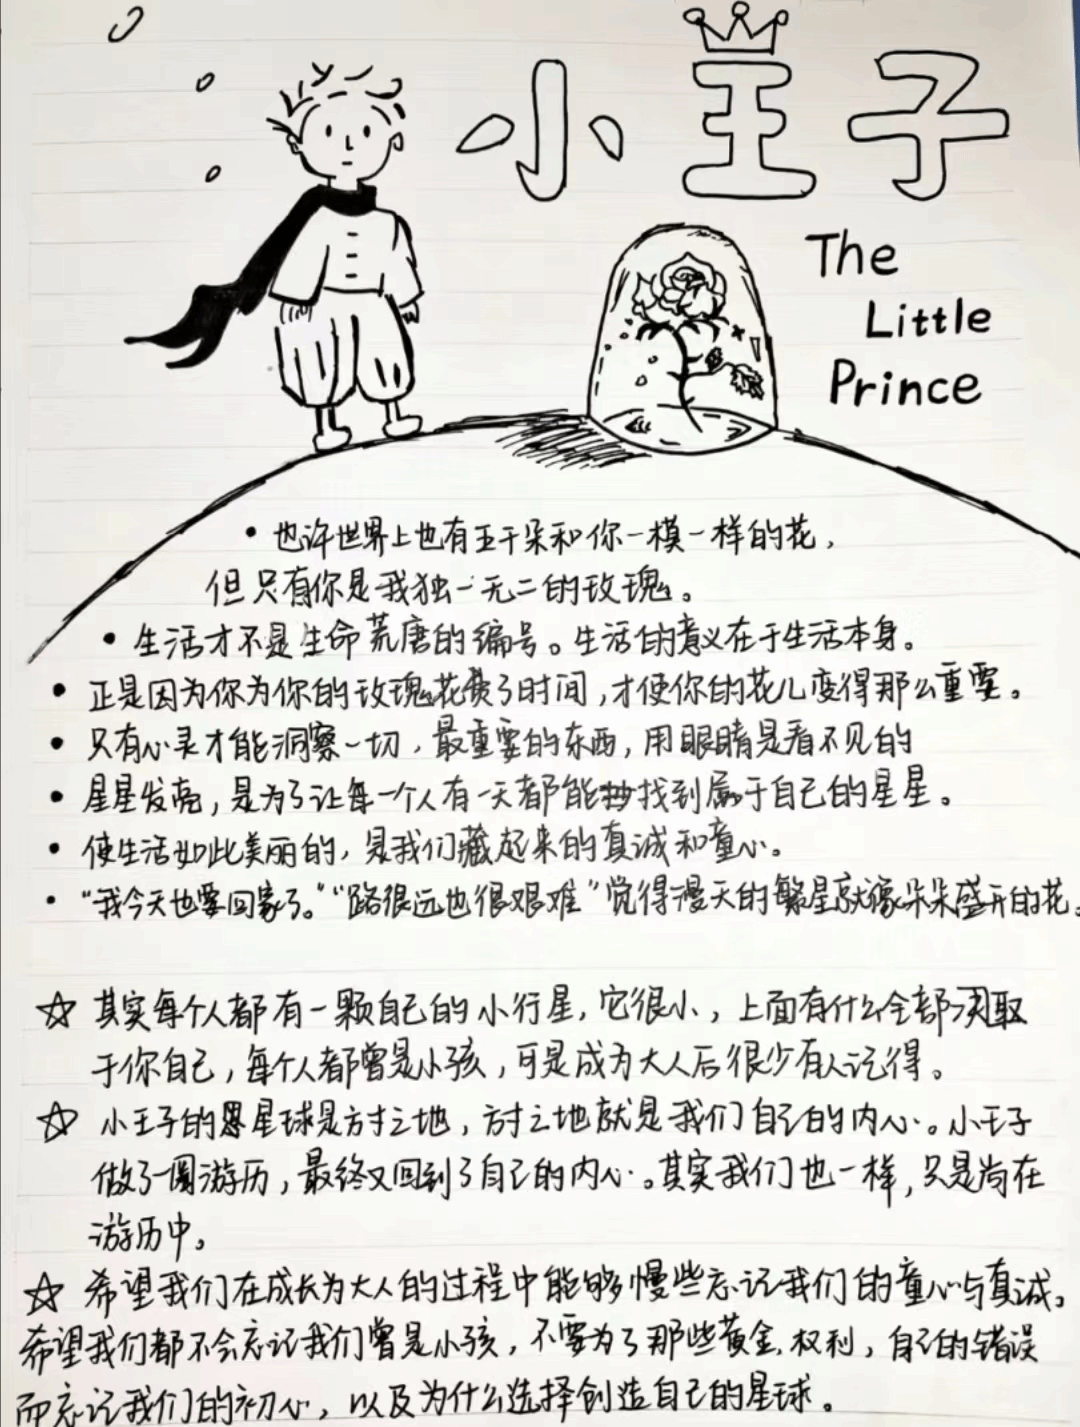 小王子
The
Little
Prince
• 也许世界上也有五千朵和你一模一样的花，
但只有你是我独一无二的玫瑰。
• 生活才不是生命荒唐的编号。生活的意义在于生活本身。
• 正是因为你为你的玫瑰花费了时间，才使你的花儿变得那么重要。
• 只有心灵才能洞察一切，最重要的东西，用眼睛是看不见的
• 星星发亮，是为了让每一个人有一天都能找到属于自己的星星。
• 使生活如此美丽的，是我们藏起来的真诚和童心。
• “我今天也要回家了。”“路很远也很艰难”觉得漫天的繁星就像朵朵盛开的花。
☆ 其实每个人都有一颗自己的小行星，它很小，上面有什么全部决取
于你自己，每个人都曾是小孩，可是成为大人后很少有人记得。
☆ 小王子的星球是方寸之地，方寸之地就是我们自己的内心。小王子
做了一圈游历，最终又回到了自己的内心。其实我们也一样，只是尚在
游历中。
☆ 希望我们在成长为大人的过程中能够慢些忘记我们的童心与真诚。
希望我们都不会忘记我们曾是小孩，不要为了那些黄金，权利，自己的错误
而忘记我们的初心，以及为什么选择创造自己的星球。